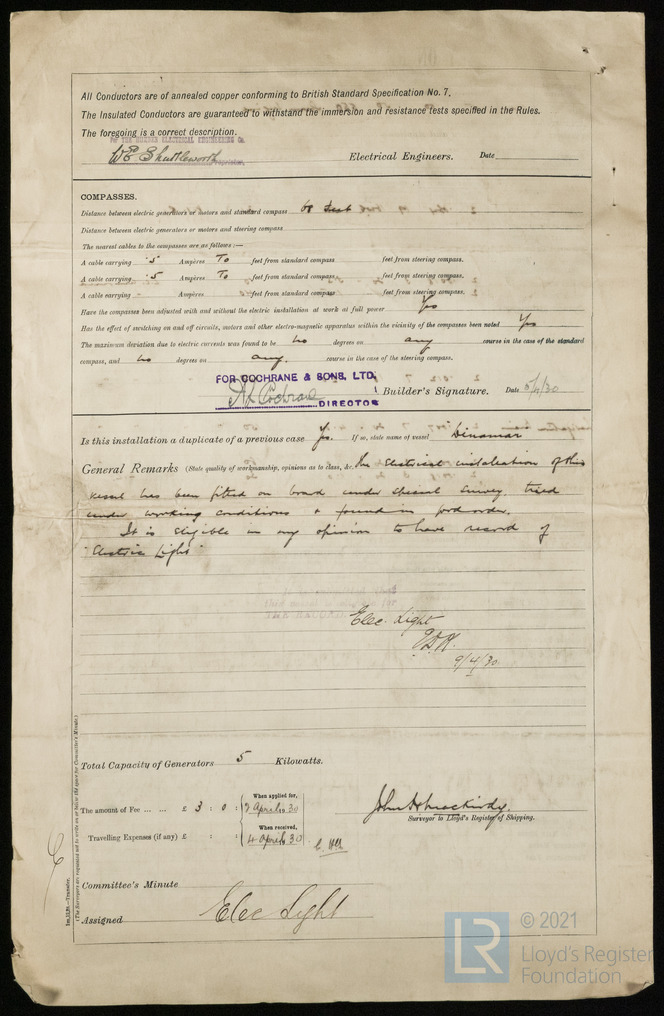 All Conductors are of annealed copper conforming to British Standard Specification No. 7.
The Insulated Conductors are guaranteed to withstand the immersion and resistance tests specified in the Rules.
The foregoing is a correct description.
For THE HUMBER ELECTRICAL ENGINEERING Co.
WE Shuttleworth Electrical Engineers. Date
COMPASSES.
Distance between electric generators or motors and standard compass 68 feet
Distance between electric generators or motors and steering compass
The nearest cables to the compasses are as follows:—
A cable carrying ·5 Ampères To feet from standard compass feet from steering compass.
A cable carrying ·5 Ampères To feet from standard compass feet from steering compass.
A cable carrying - Ampères feet from standard compass feet from steering compass.
Have the compasses been adjusted with and without the electric installation at work at full power Yes
Has the effect of switching on and off circuits, motors and other electro-magnetic apparatus within the vicinity of the compasses been noted Yes
The maximum deviation due to electric currents was found to be No degrees on any course in the case of the standard
compass, and No degrees on any. course in the case of the steering compass.
FOR COCHRANE & SONS, LTD.
Cochrane Builder's Signature. Date 5/4/30
DIRECTOR
Is this installation a duplicate of a previous case Yes. If so, state name of vessel Dinamar
General Remarks (State quality of workmanship, opinions as to class, &c. The Electrical installation of this
vessel has been fitted on board under special survey, tried
under working conditions & found in good order.
It is eligible in my opinion to have record of
"Electric Light"
Elec. Light
9/4/30
Total Capacity of Generators 5 Kilowatts.
The amount of Fee ... ... £ 3 : 0 :
When applied for,
2 April 30
When received,
4 April 30
Travelling Expenses (if any) £ : :
Surveyor to Lloyd's Register of Shipping.
Committee's Minute
Assigned Elec Light
(The Surveyors are requested not to write on or below the space for Committee's Minute.)
© 2021
LR
Lloyd's Register
Foundation